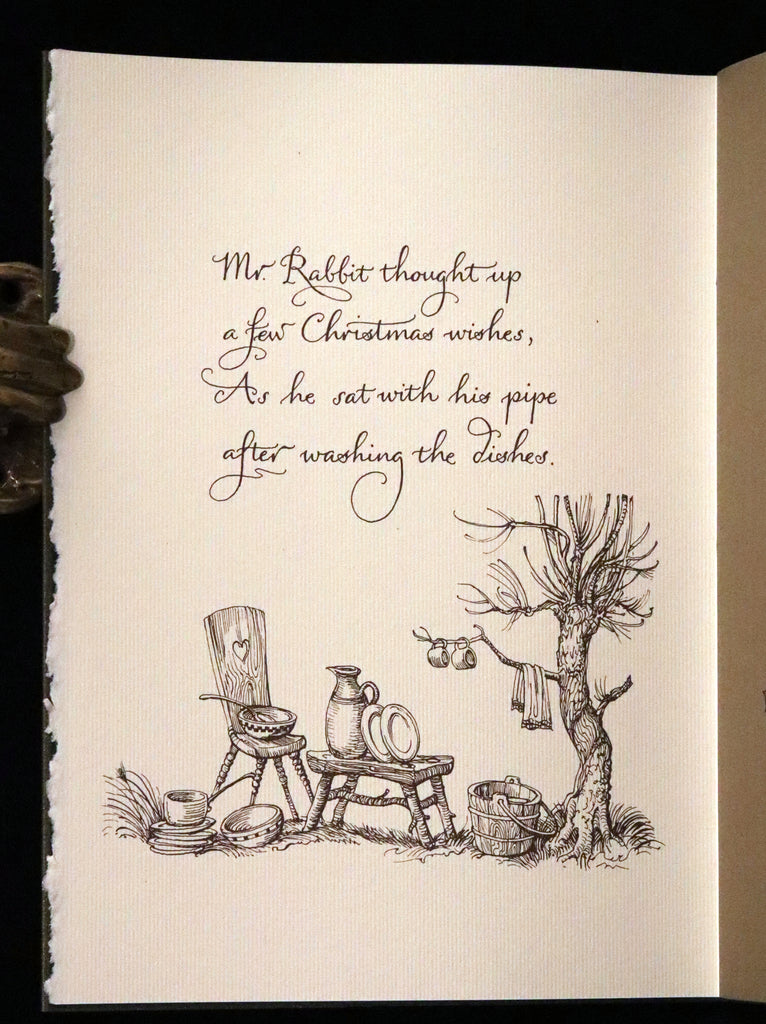 Mr. Rabbit thought up
a few Christmas wishes,
As he sat with his pipe
after washing the dishes.